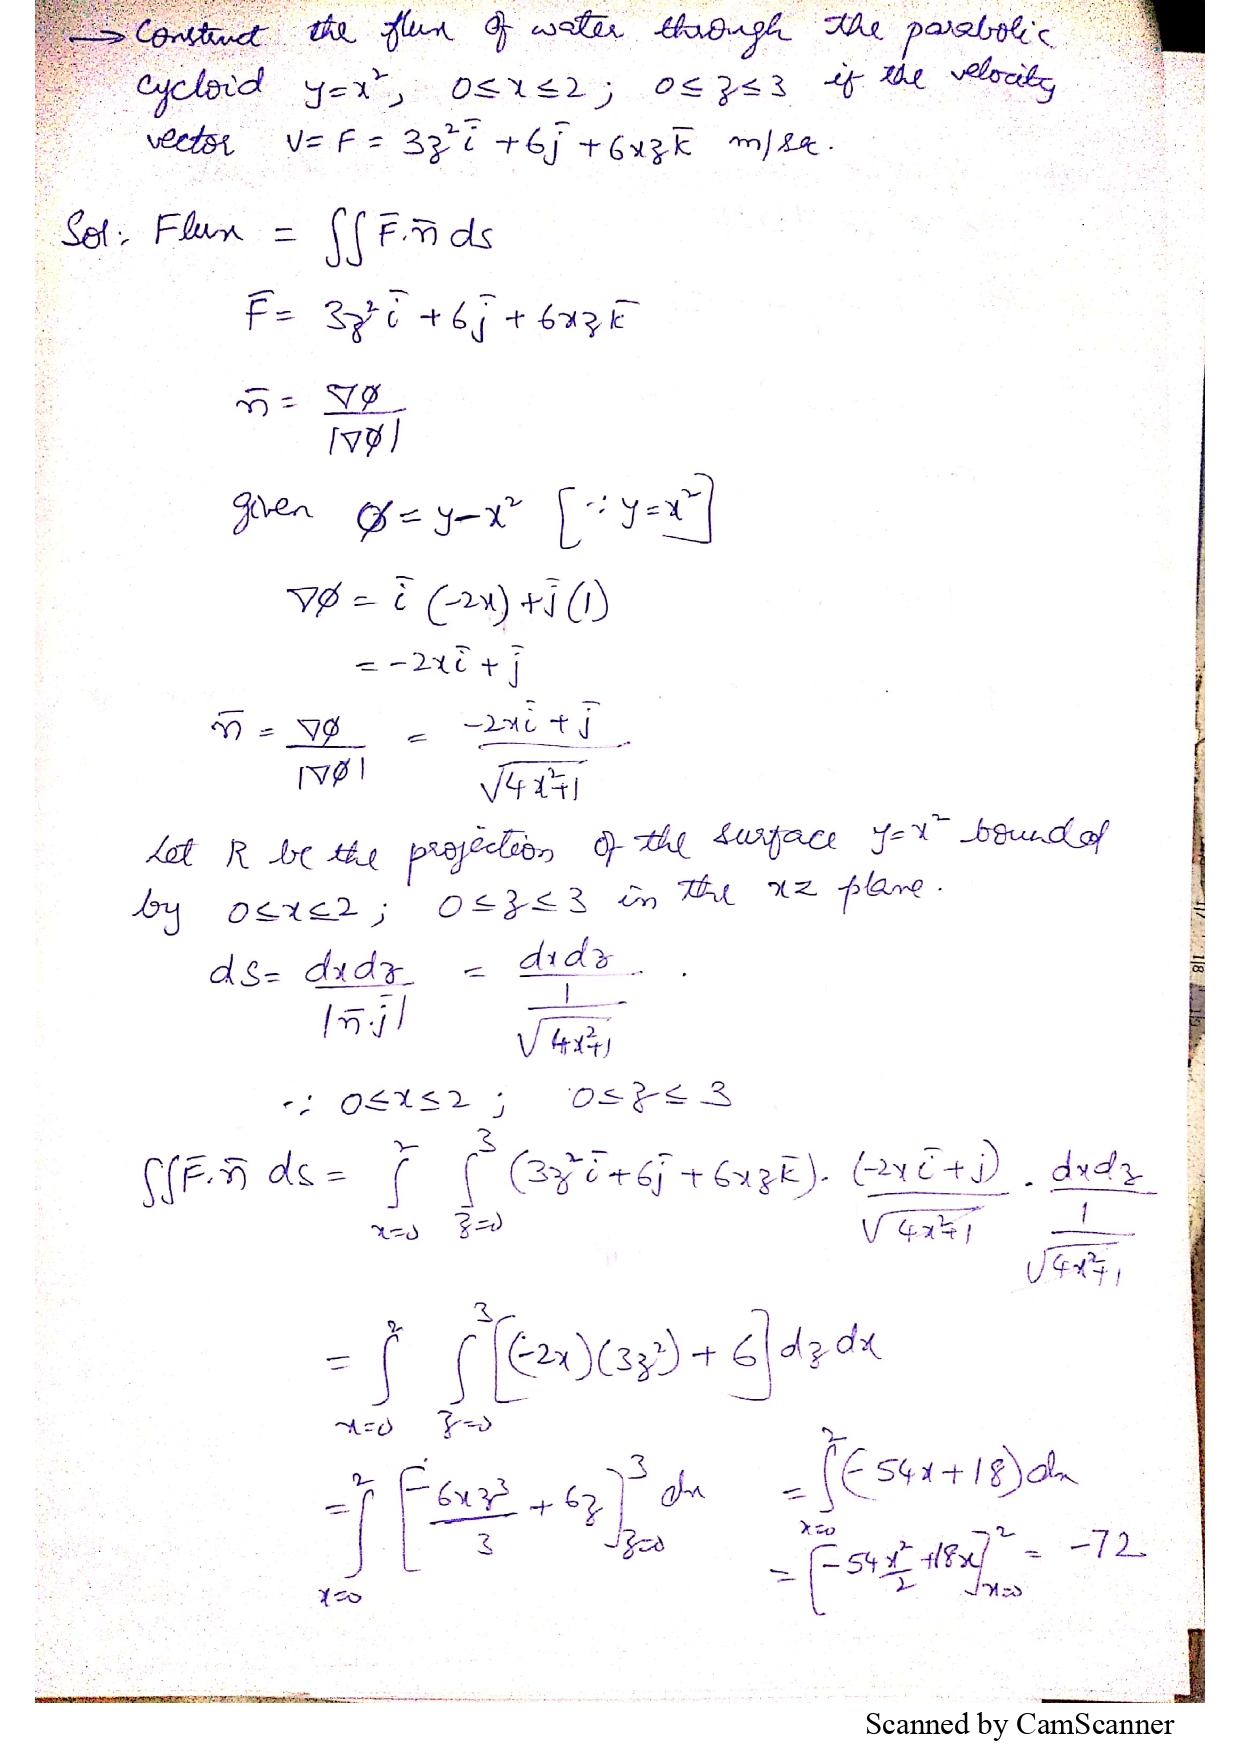 → Construct the flux of water through the parabolic
cycloid y=x², 0≤x≤2; 0≤z≤3 if the velocity
vector V= F = 3z² i̅ + 6 j̅ + 6xz k̅ m/sec.
Sol:- Flux = ∬ F̅.n̅ ds
F̅ = 3z² i̅ + 6 j̅ + 6xz k̅
n̅ = ∇ø / |∇ø|
given ø = y-x² [∵ y=x²]
∇ø = i̅ (-2x) + j̅ (1)
= -2x i̅ + j̅
n̅ = ∇ø / |∇ø| = -2x i̅ + j̅ / √4x²+1
Let R be the projection of the surface y=x² bounded
by 0≤x≤2; 0≤z≤3 in the xz plane.
ds = dxdz / |n̅.j̅| = dxdz / 1/√4x²+1
∵ 0≤x≤2; 0≤z≤3
∬F̅.n̅ ds = ∫_{x=0}^{2} ∫_{z=0}^{3} (3z² i̅ + 6 j̅ + 6xz k̅). (-2x i̅ + j) / √4x²+1 . dxdz / 1/√4x²+1
= ∫_{x=0}^{2} ∫_{z=0}^{3} [(-2x)(3z²) + 6] dz dx
= ∫_{x=0}^{2} [-6xz³/3 + 6z]_{z=0}^{3} dx
= ∫_{x=0}^{2} (-54x+18) dx
= [-54 x²/2 + 18x]_{x=0}^{2} = -72
Scanned by CamScanner